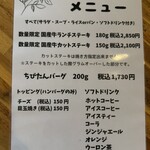 メニュー
すべて（サラダ・スープ・ライスorパン・ソフトドリンク付き）
数量限定 国産牛ランチステーキ 160g 税込2,650円
数量限定 国産牛カットステーキ 150g 税込2,100円
カットステーキは焼き方指定出来ません。
ちびたんバーグ 200g 税込1,730円
トッピング（ハンバーグのみ）
チーズ （税込）150円
目玉焼き（税込）150円
ソフトドリンク
ホットコーヒー
アイスコーヒー
アイスティー
コーラ
ジンジャエール
オレンジ
ウーロン茶